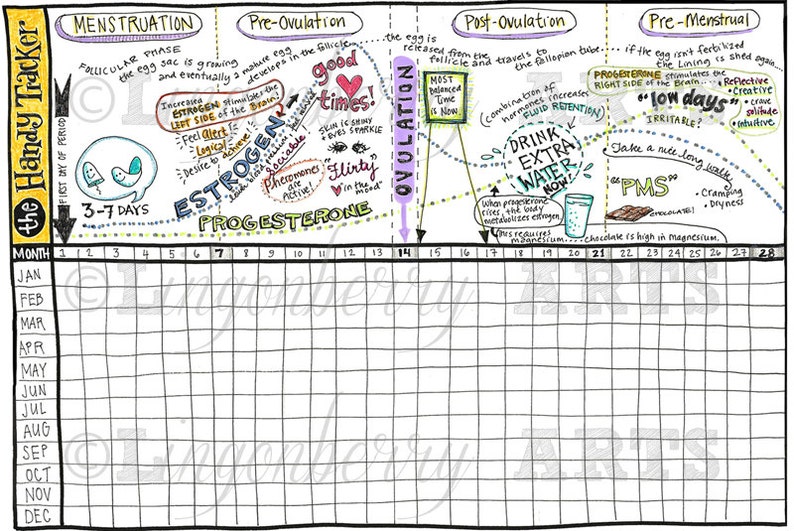 the Handy Tracker
MENSTRUATION
Pre-Ovulation
Post-Ovulation
Pre-Menstrual
FOLLICULAR PHASE
the egg sac is growing
and eventually a mature egg
develops in the follicle.......
the egg is
released from the
follicle and travels to
the fallopian tube....
... if the egg isn't fertilized
the lining is shed again...
FIRST DAY OF PERIOD
3-7 DAYS
Increased
ESTROGEN stimulates the
LEFT SIDE of the Brain.
Feel Alert!
Logical
Desire to achieve!
ESTROGEN
sociable
PROGESTERONE
good
times!
SKIN IS SHINY
+ EYES SPARKLE
Pheromones
are Active!
"Flirty"
"in the mood"
OVULATION
MOST
Balanced
Time
is Now
(combination of
hormones increases
FLUID RETENTION)
DRINK
EXTRA
WATER
NOW!
When progesterone
rises, the body
metabolizes estrogen.
This requires
magnesium..... chocolate is high in magnesium.
PROGESTERONE stimulates the
RIGHT SIDE of the Brain...
• Reflective
• Creative
• crave
solitude
• intuitive
"low days"
IRRITABLE?
Take a nice long walk
"PMS"
• Cramping
• Dryness
CHOCOLATE!
MONTH 1 2 3 4 5 6 7 8 9 10 11 12 13 14 15 16 17 18 19 20 21 22 23 24 25 26 27 28
JAN
FEB
MAR
APR
MAY
JUN
JUL
AUG
SEP
OCT
NOV
DEC
©Lingonberry ARTS
©Lingonberry ARTS